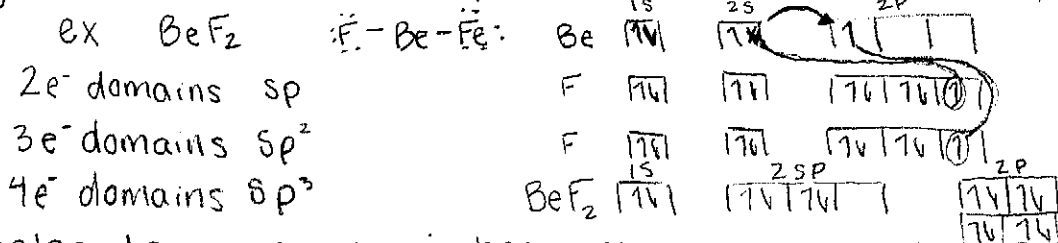 ex BeF₂ :F̤̈ - Be - F̤̈e: Be 1s 2s 2P
2e⁻ domains sp F
3e⁻ domains sp² F
4e⁻ domains sp³ BeF₂ 1s 2SP 2P